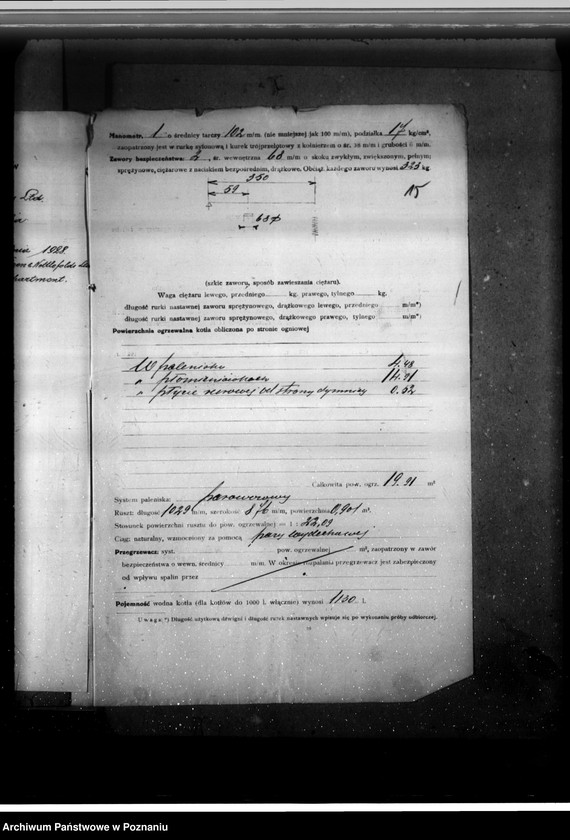 Ltd.
1928.
Nettlefolds
Manometr, 1 o średnicy tarczy 102 m/m (nie mniejszej jak 100 m/m), podziałka 17 kg/cm²,
zaopatrzony jest w rurkę syfonową i kurek trójprzelotowy z kołnierzem o śr. m/m i grubości 6 m/m.
Zawory bezpieczeństwa: 2, śr. wewnętrzna 63 m/m o skoku zwykłym, zwiększonym, pełnym;
sprężynowe, ciężarowe z naciskiem bezpośrednim, drążkowe. Obciąż. każdego zaworu wynosi 323 kg.
350
59
15
(szkic zaworu, sposób zawieszania ciężaru).
Waga ciężaru lewego, przedniego kg. prawego, tylnego kg.
długość rurki nastawnej zaworu sprężynowego, drążkowego lewego, przedniego m/m*)
długość rurki nastawnej zaworu sprężynowego, drążkowego prawego, tylnego m/m*)
Powierzchnia ogrzewalna kotła obliczona po stronie ogniowej
W palenisku 4,48
" płomieniówkach 14.91
" płycie sitowej od strony dymnicy 0.52
Całkowita pow. ogrz. 19.91 m²
System paleniska: parowozowy
Ruszt: długość 1029 m/m, szerokość 876 m/m, powierzchnia 0,901 m².
Stosunek powierzchni rusztu do pow. ogrzewalnej = 1 : 22,09
Ciąg: naturalny, wzmocniony za pomocą pary wydechowej
Przegrzewacz: syst. pow. ogrzewalnej m², zaopatrzony w zawór
bezpieczeństwa o wewn. średnicy m/m. W okresie rozpalania przegrzewacz jest zabezpieczony
od wpływu spalin przez
Pojemność wodna kotła (dla kotłów do 1000 l. włącznie) wynosi 1130 l.
Uwaga: *) Długość użytkową dźwigni i długość rurek nastawnych wpisuje się po wykonaniu próby odbiorczej.
Archiwum Państwowe w Poznaniu